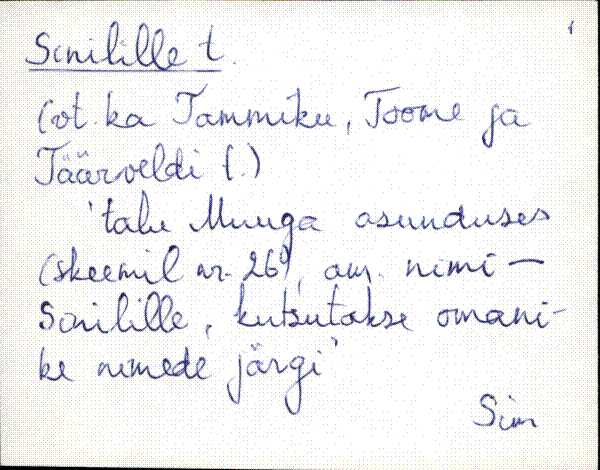 Sinilille t.
(vt. ka Tammiku, Toome ja
Täärveldi t.)
'talu Muuga asunduses
(skeemil nr. 26), am. nimi —
Sinilille, kutsutakse omani-
ke nimede järgi'
Sim